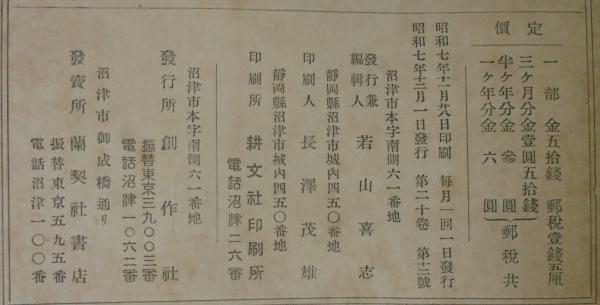 定價
一部 金五拾錢 郵税壹錢五厘
三ケ月分金壹圓五拾錢
半ケ年分金 參 圓 郵税共
一ケ年分金 六 圓
昭和七年十一月廿八日印刷 毎月一回一日發行
昭和七年十二月一日發行 第二十卷 第十二號
沼津市本字南側六一番地
發行兼編輯人 若山喜志
靜岡縣沼津市城内四五〇番地
印刷人 長澤茂雄
靜岡縣沼津市城内四五〇番地
印刷所 耕文社印刷所
電話沼津二六番
沼津市本字南側六一番地
發行所 創作社
振替東京三九〇〇三番
電話沼津一〇六二番
沼津市御成橋通り
發賣所 蘭契社書店
振替東京五九五番
電話沼津一〇〇番